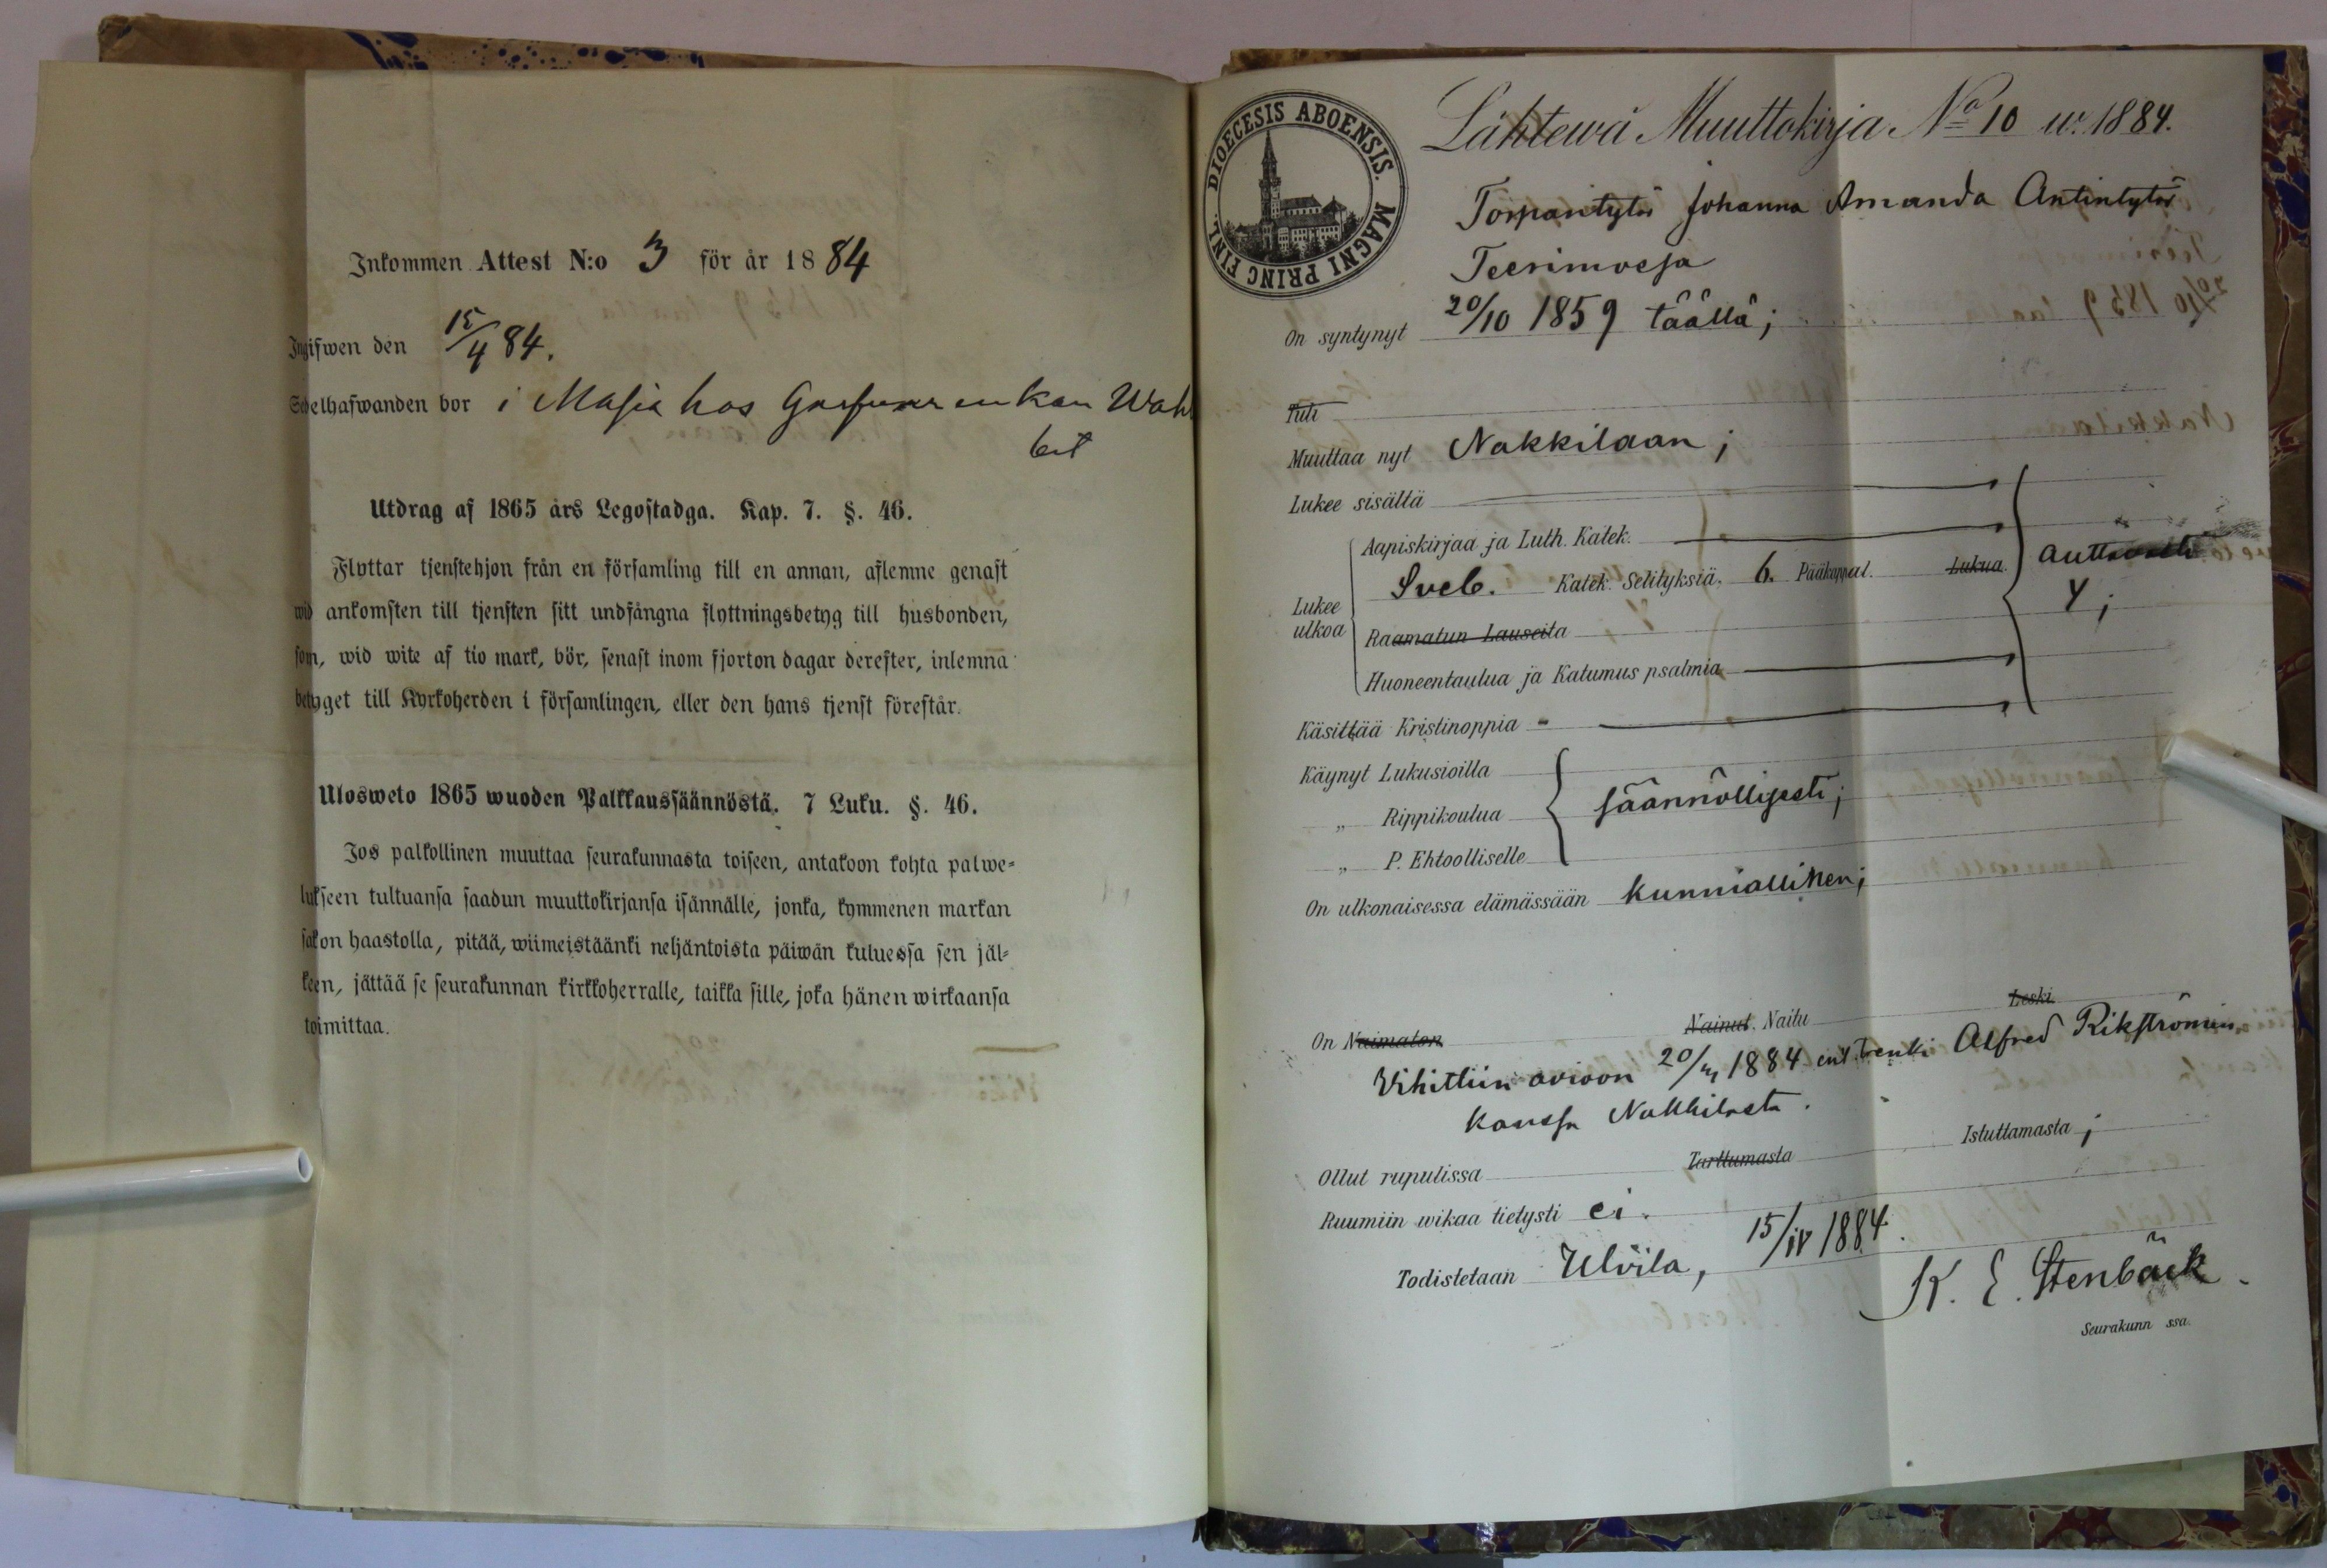 Inkommen Attest N:o 3 för år 1884
Ingifwen den 15/4 84.
Sedelhafwanden bor i Masia hos
Utdrag af 1865 års Legostadga. Kap. 7. §. 46.
Flyttar tjenstehjon från en församling till en annan, aflemne genast
wid ankomsten till tjensten sitt undfångna flyttningsbetyg till husbonden,
som, wid wite af tio mark, bör, senast inom fjorton dagar derefter, inlemna
betyget till Kyrkoherden i församlingen, eller den hans tjenst förestår.
Ulosweto 1865 wuoden Palkkaussäännöstä. 7 Luku. §. 46.
Jos palkollinen muuttaa seurakunnasta toiseen, antakoon kohta palwe-
lukseen tultuansa saadun muuttokirjansa isännälle, jonka, kymmenen markan
sakon haastolla, pitää, wiimeistäänki neljäntoista päiwän kuluessa sen jäl-
keen, jättää se seurakunnan kirkkoherralle, taikka sille, joka hänen wirkaansa
toimittaa.
DIOECESIS ABOENSIS. MAGNI PRINC FINL.
Lähtewä Muuttokirja No 10 w. 1884.
Torpantytär Johanna Amanda Antintytär
Teerimoeja
On syntynyt 20/10 1859 täällä;
Tuli
Muuttaa nyt Nakkilaan;
Lukee sisältä
Aapiskirjaa ja Luth. Katek.
Lukee ulkoa
Sveb. Katek. Selityksiä, 6. Pääkappal. Lukua. auttavasti
Y;
Raamatun Lauseita
Huoneentaulua ja Katumus psalmia
Käsittää Kristinoppia
Käynyt Lukusioilla
„ Rippikoulua säännöllisesti;
„ P. Ehtoolliselle
On ulkonaisessa elämässään kunniallinen;
On Naimaton Nainut. Naitu Leski
Vihittiin avioon 20/ 1884 ent. renki Alfred Rikströmin
kanssa Nakkilasta.
Ollut rupulissa Tarttumasta Istuttamasta;
Ruumiin wikaa tietysti ei.
Todistetaan Ulvila, 15/IV 1884.
K. E. Stenbäck.
Seurakunn ssa.